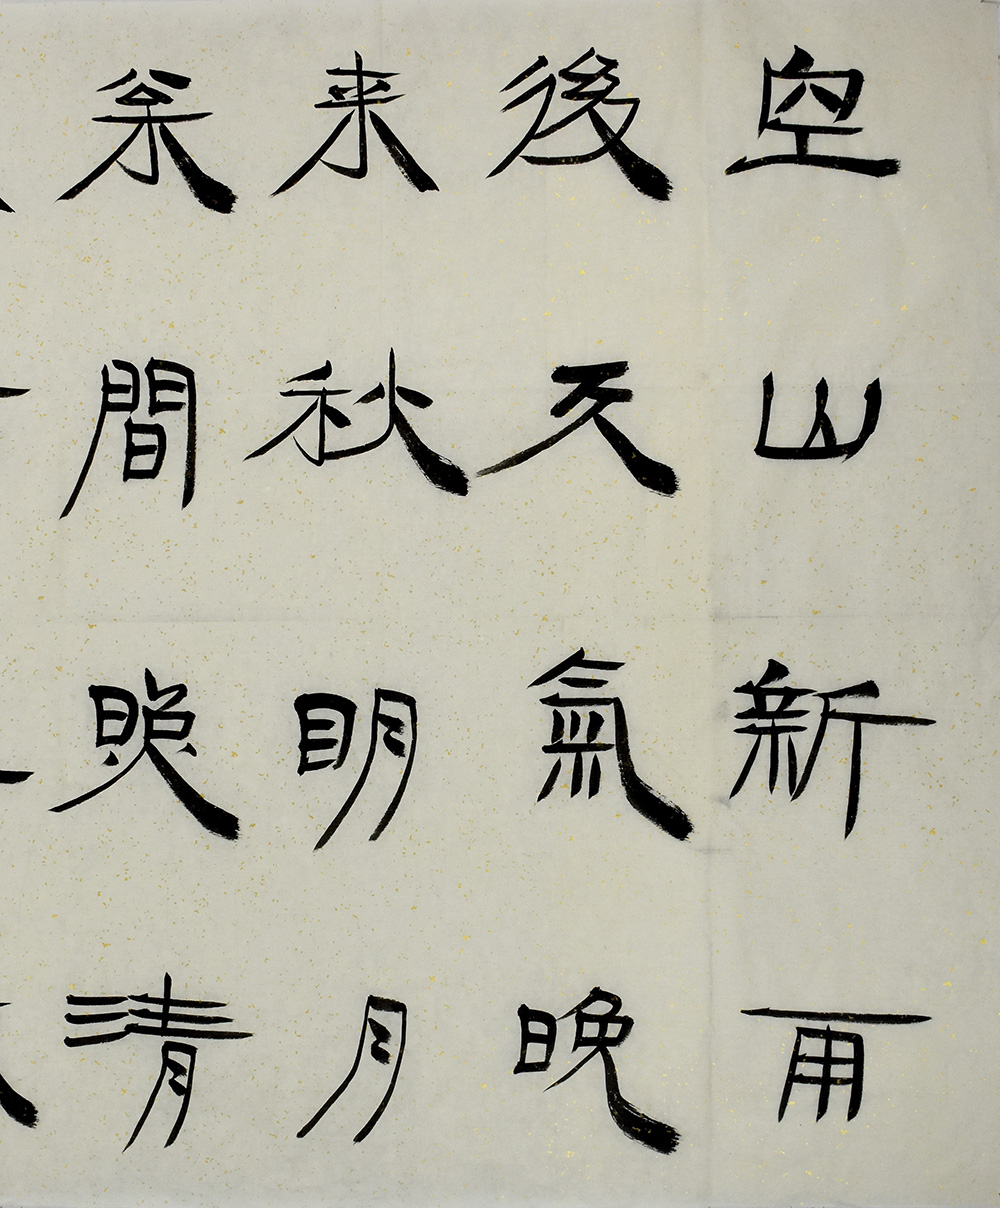 空山新雨
後天氣晚
来秋眀月
枀間照清